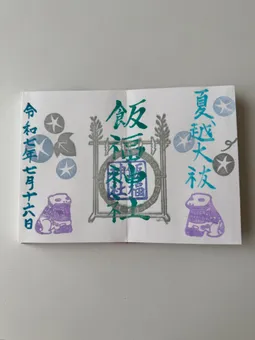 夏越大祓
飯福神社
令和七年七月十六日